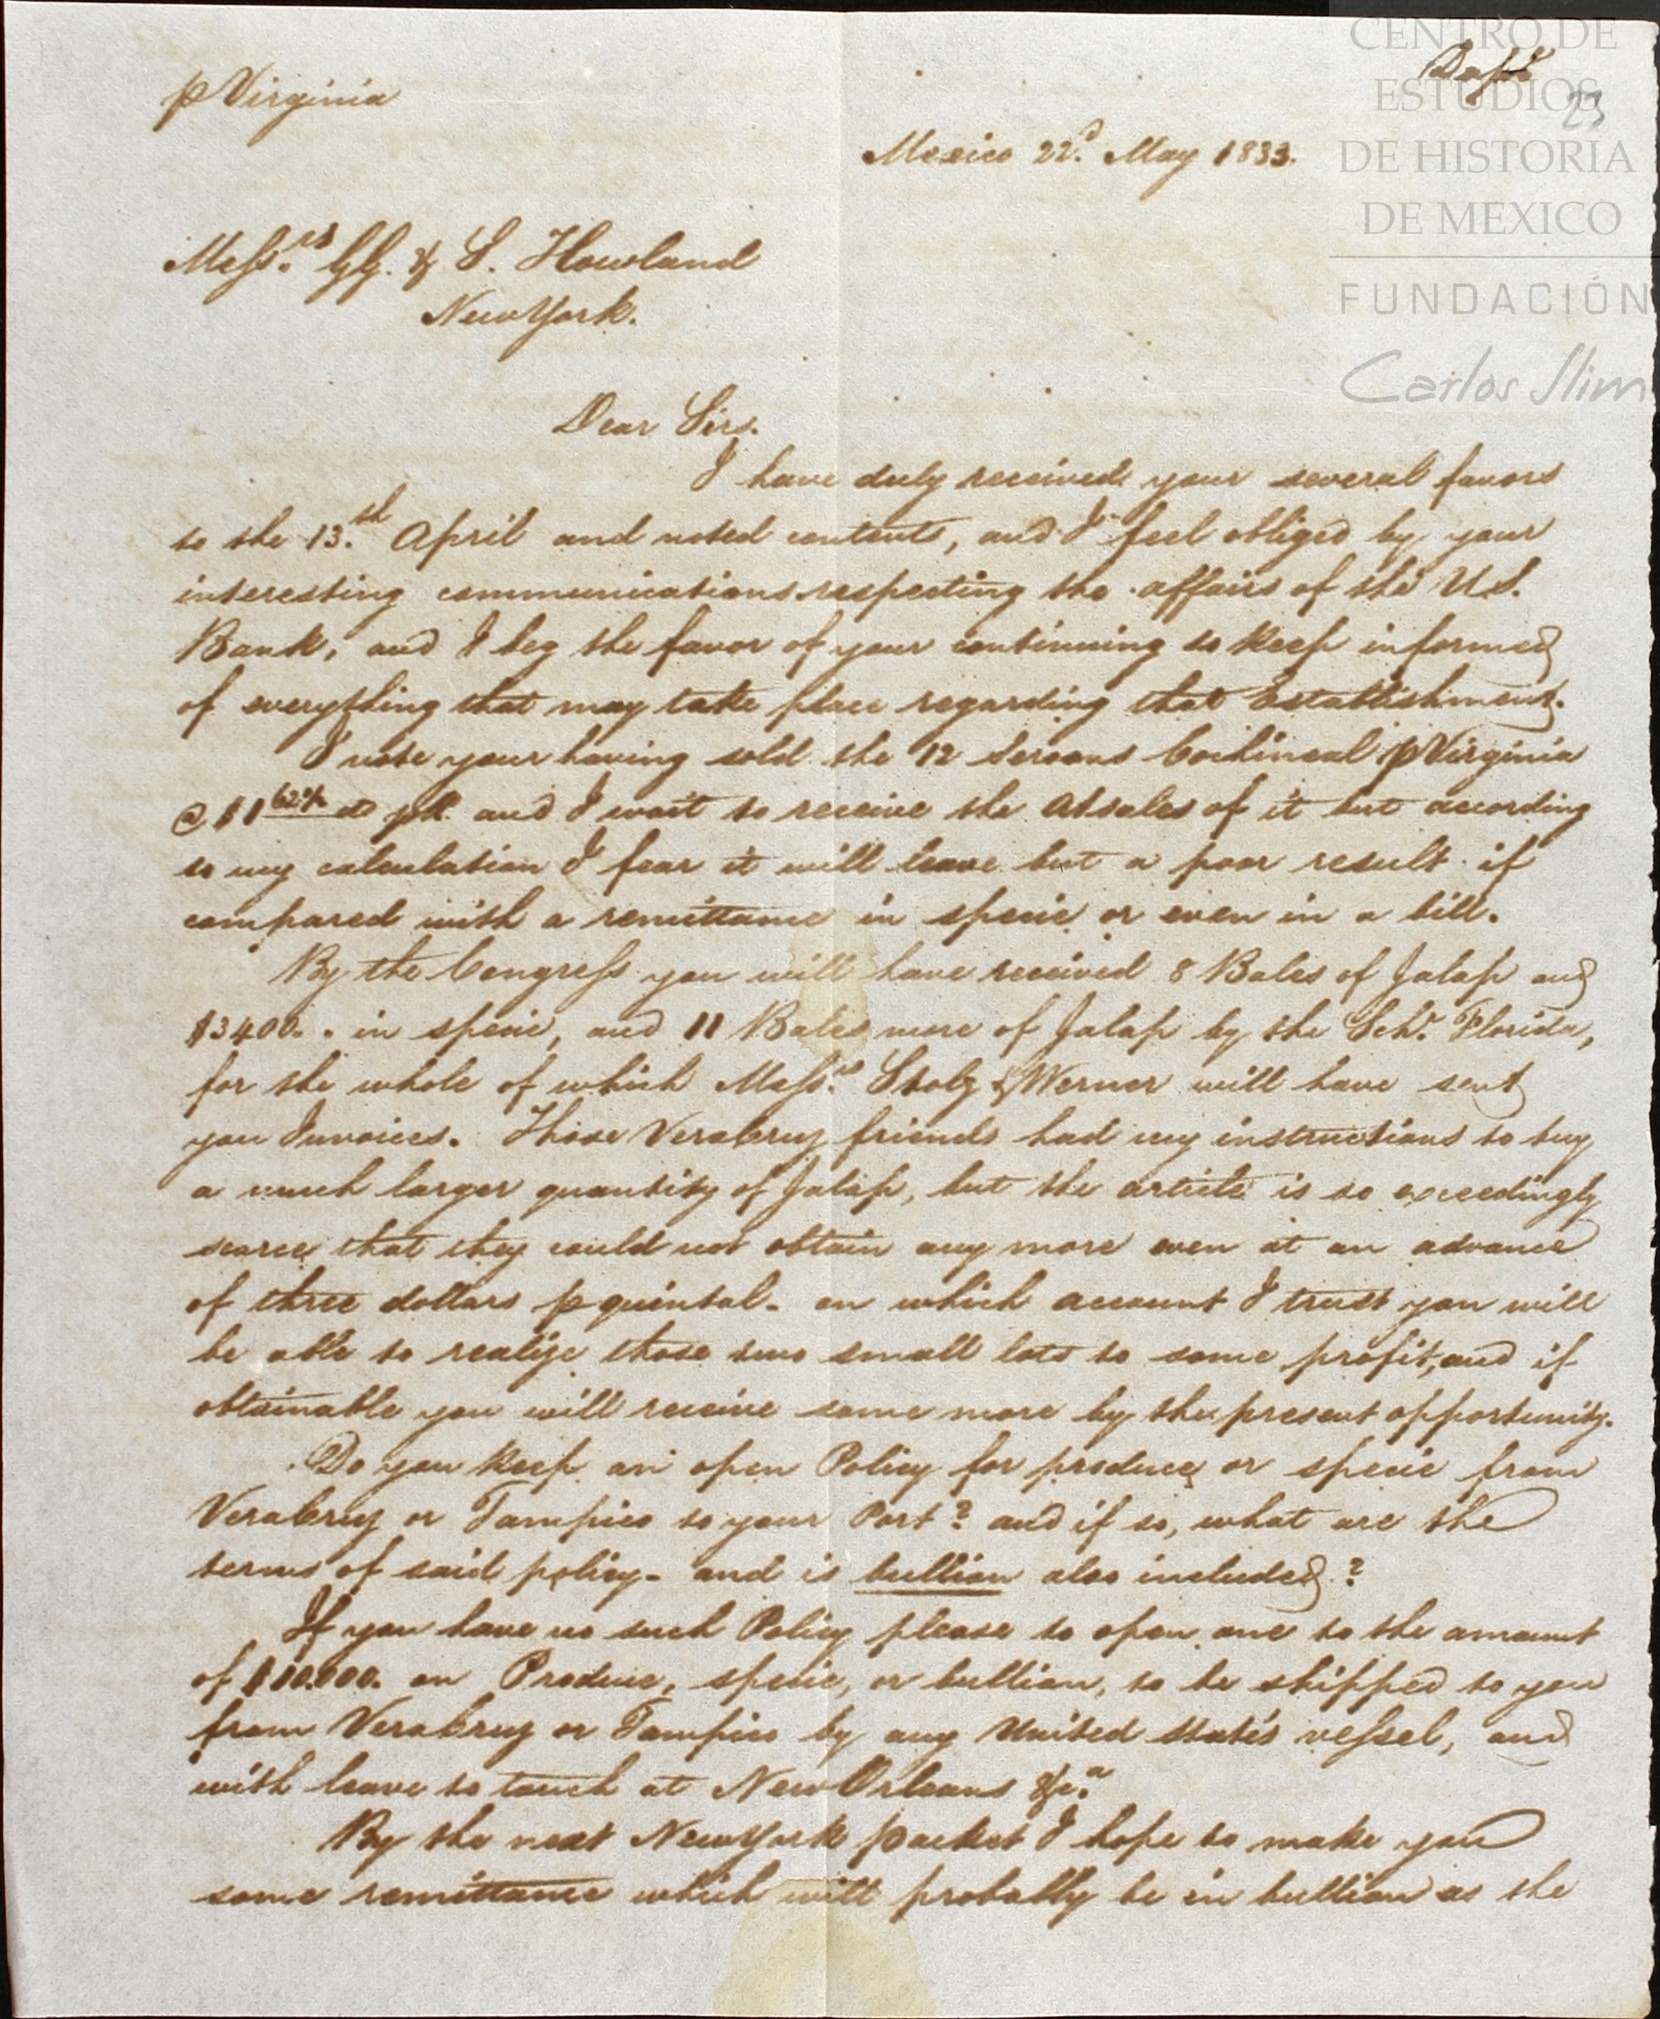 CENTRO DE
ESTUDIOS
DE HISTORIA
DE MEXICO
FUNDACIÓN
Carlos Slim
23
p Virginia
Mexico 22d. May 1833.
Messrs. G.G. & S. Howland
New York.
Dear Sirs.
I have duly received your several favors
to the 13th. April and noted contents, and I feel obliged by your
interesting communications respecting the affairs of the U.S.
Bank, and I beg the favor of your continuing to keep informed
of everything that may take place regarding that Establishment.
I note your having sold the 12 Seroons Cochineal p Virginia
@ $1 62½ and I wait to receive the A/sales of it but according
to my calculation I fear it will leave but a poor result if
compared with a remittance in specie or even in a bill.
By the Congress you will have received 8 Bales of Jalap and
$3400.. in specie, and 11 Bales more of Jalap by the Schr. Florida,
for the whole of which Messrs. Stolz & Werner will have sent
you Invoices. Those VeraCruz friends had my instructions to buy
a much larger quantity of Jalap, but the article is so exceedingly
scarce that they could not obtain any more even at an advance
of three dollars p quintal. on which account I trust you will
be able to realize those two small lots to some profit, and if
obtainable you will receive some more by the present opportunity.
Do you keep an open Policy for produce or specie from
VeraCruz or Tampico to your Port? and if so, what are the
terms of said policy. and is bullion also included?
If you have no such Policy please to open one to the amount
of $10.000. on Produce, specie, or bullion, to be shipped to you
from VeraCruz or Tampico by any United States vessel, and
with leave to touch at New Orleans &ca.
By the next New York packet I hope to make you
some remittance which will probably be in bullion as the